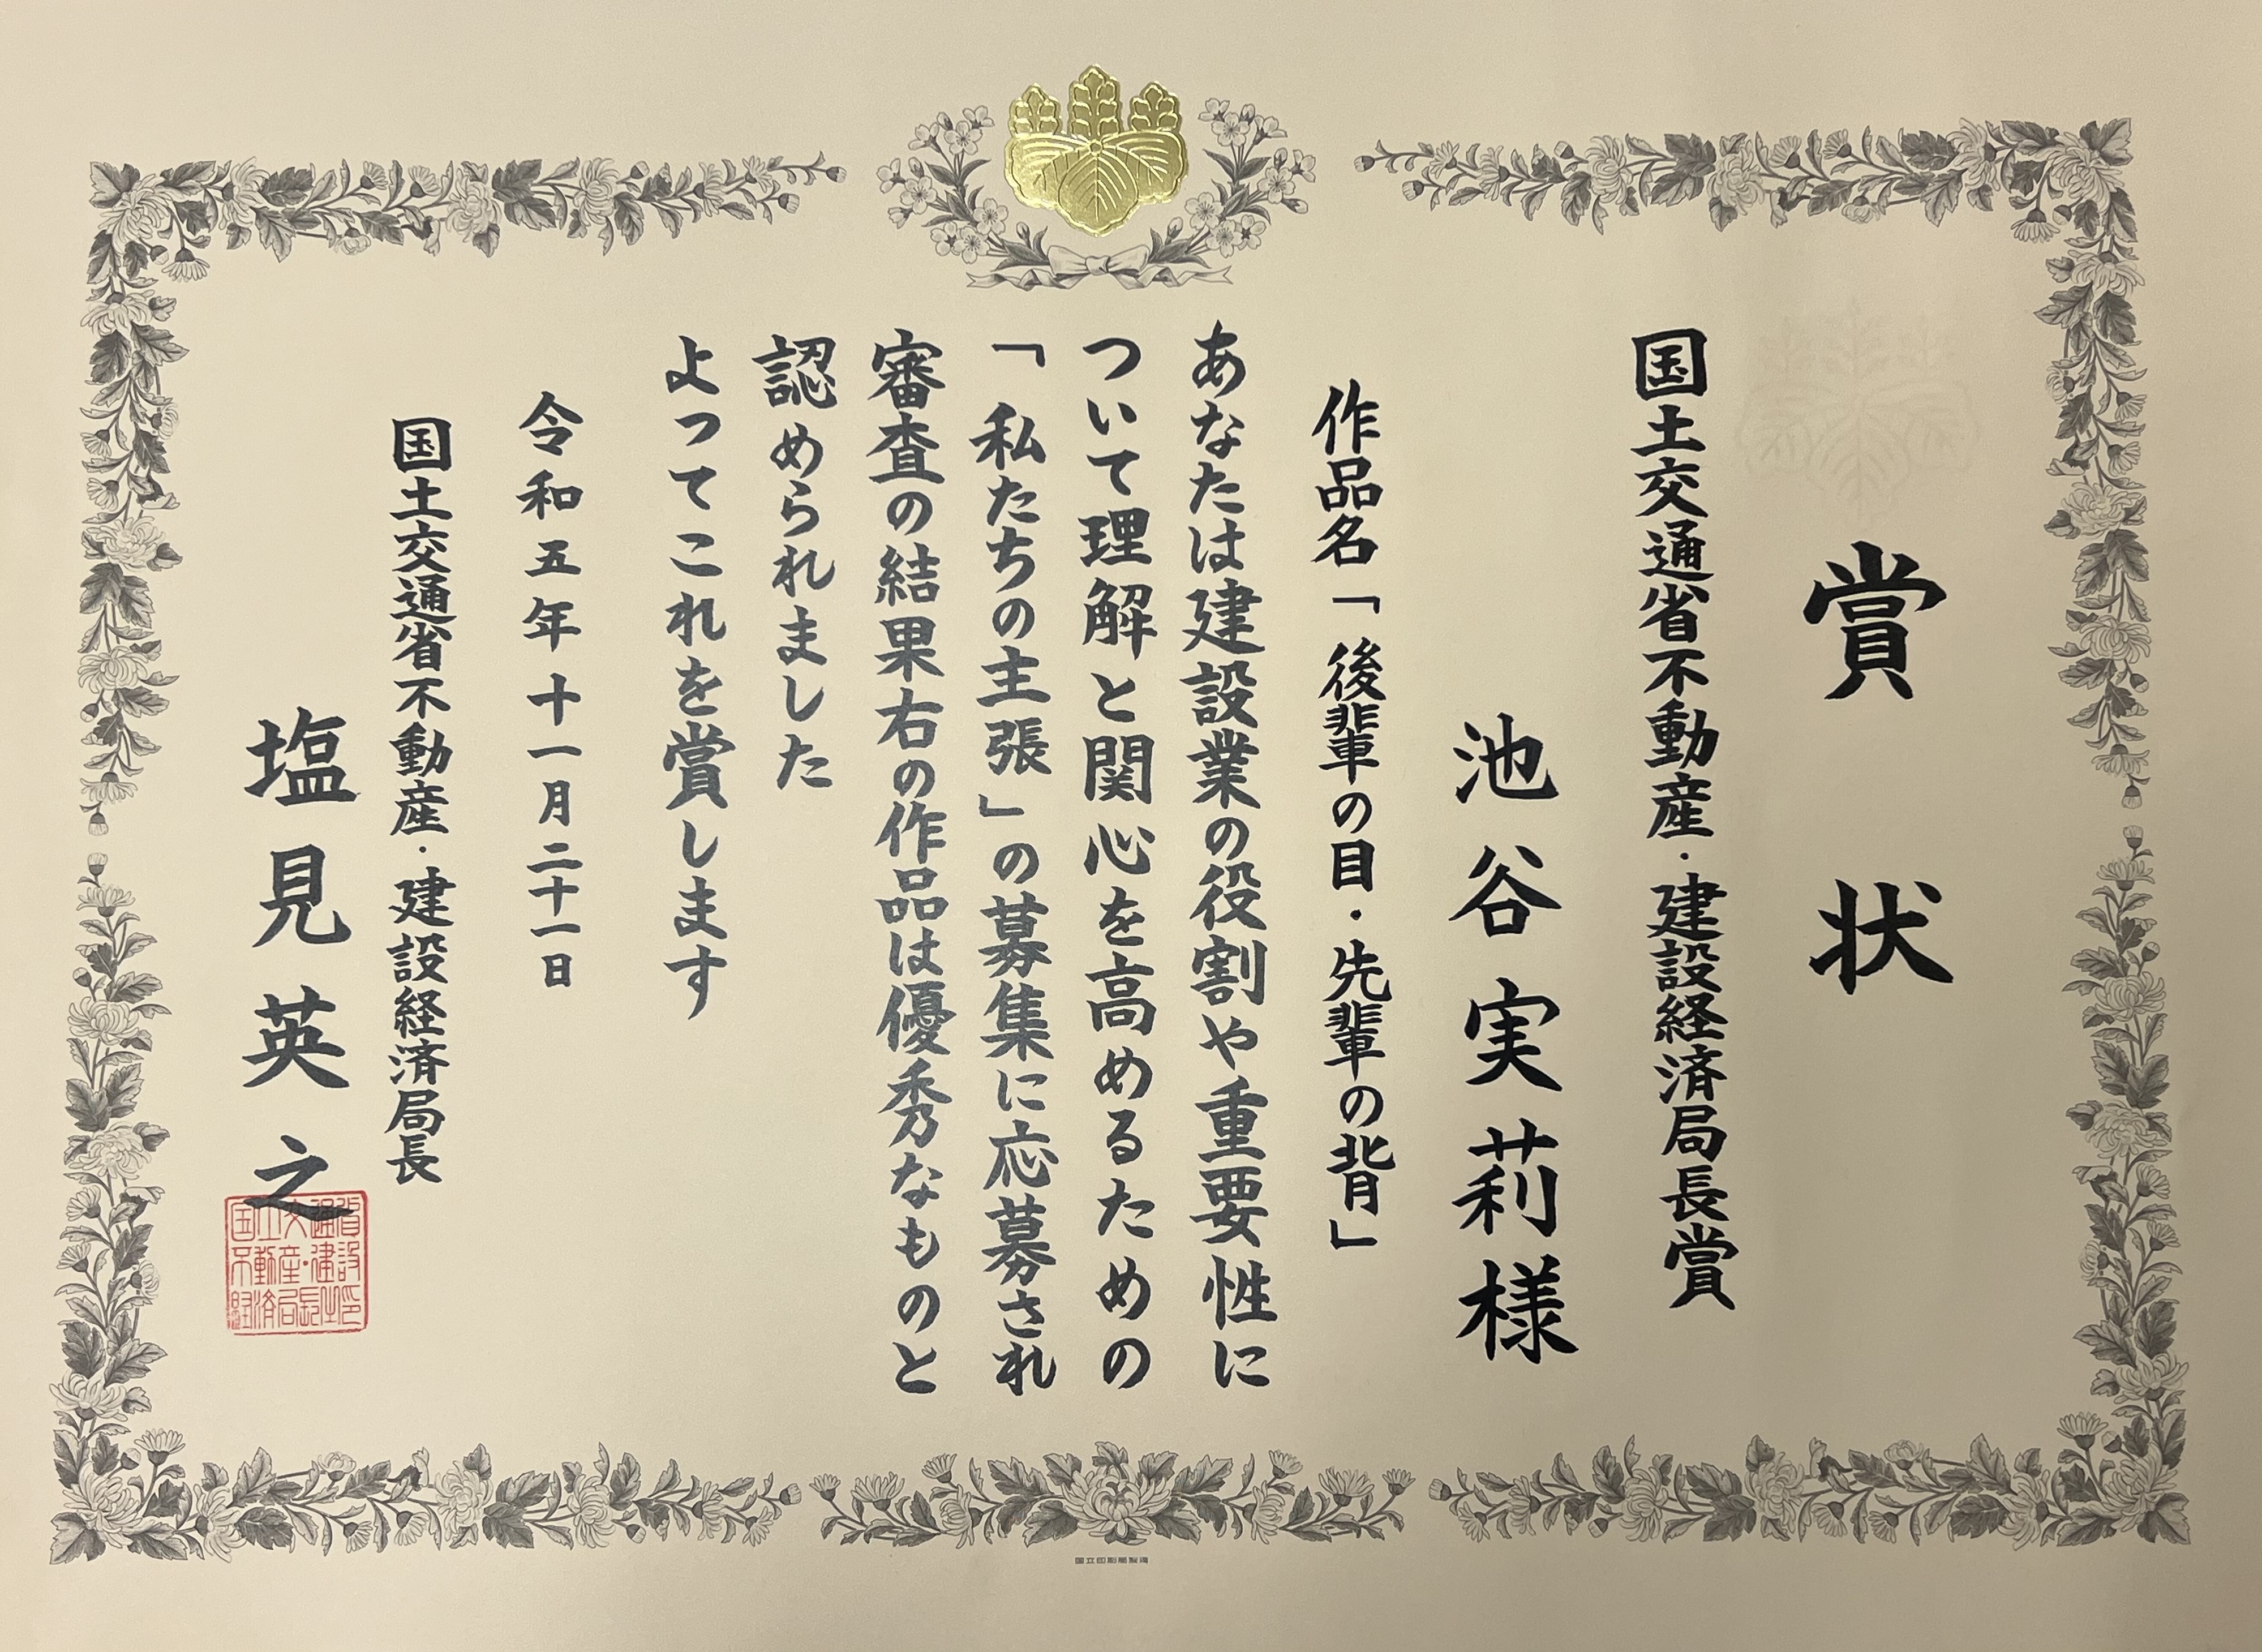 賞状
国土交通省不動産・建設経済局長賞
池谷実莉様
作品名「後輩の目・先輩の背」
あなたは建設業の役割や重要性に
ついて理解と関心を高めるための
「私たちの主張」の募集に応募され
審査の結果右の作品は優秀なものと
認められました
よってこれを賞します
令和五年十一月二十一日
国土交通省不動産・建設経済局長
塩見英之
国土交通省
不動産・建設
経済局長